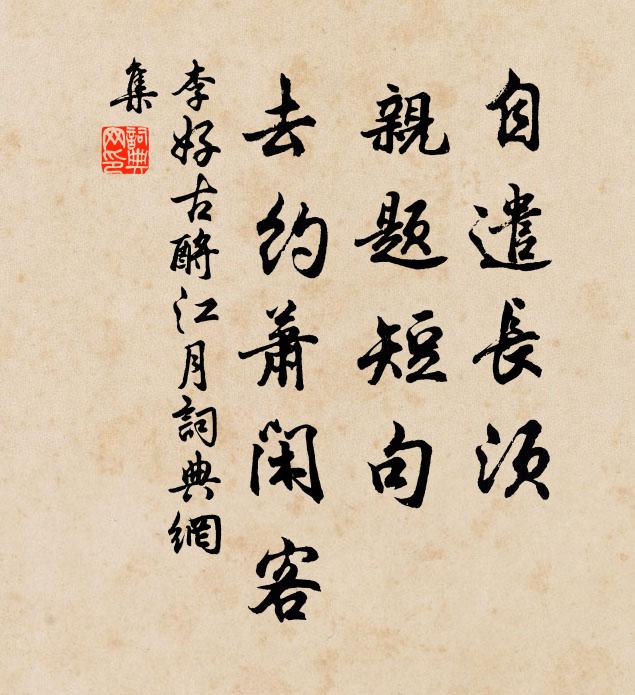 自遣長須
親题短句
去約蕭閑客
李好古酹江月詞典網
集
詞典
网印